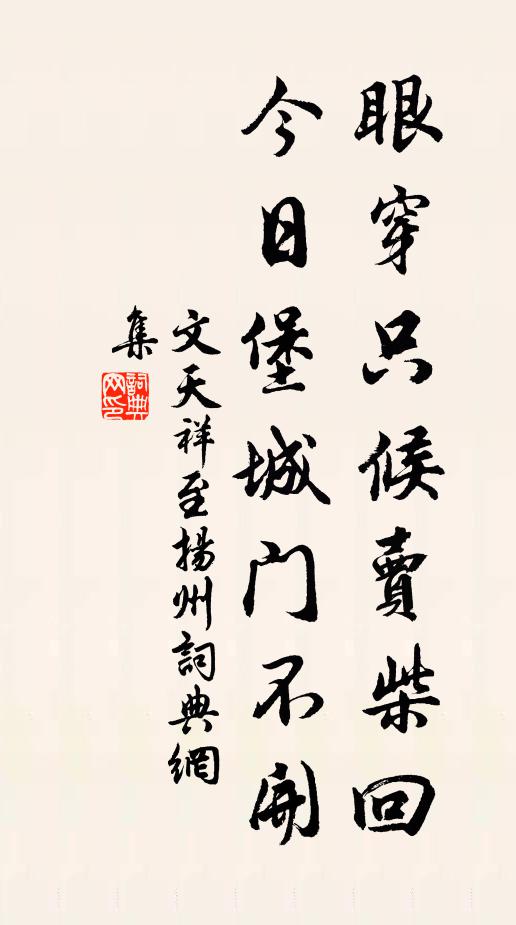 眼穿只候賣柴回
今日堡城門不開
文天祥至揚州詞典網
集
詞典網印